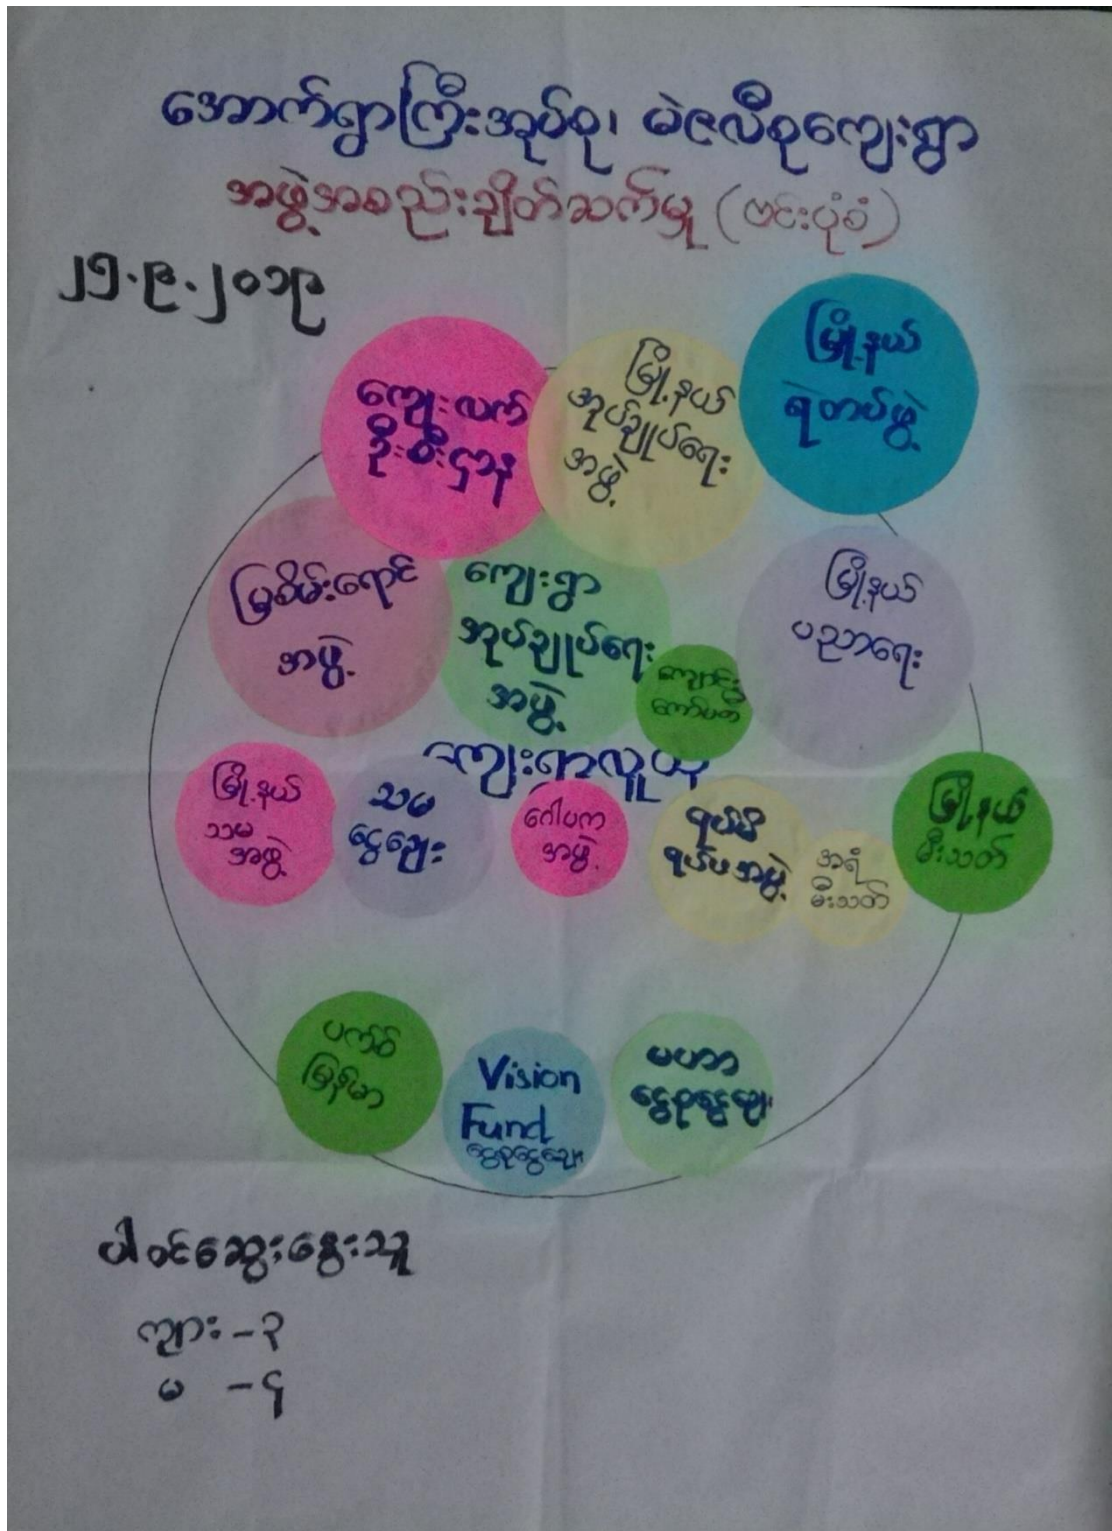 အောက်ရွာကြီးအုပ်စု၊ မဲဇလီစုကျေးရွာ
အဖွဲ့အစည်းချိတ်ဆက်မှု (ဗင်းပုံစံ)
၂၅.၉.၂၀၁၉
ကျေးလက်
ဦးစီးဌာန
မြို့နယ်
အုပ်ချုပ်ရေး
အဖွဲ့
မြို့နယ်
ရဲတပ်ဖွဲ့
မြစိမ်းရောင်
အဖွဲ့
ကျေးရွာ
အုပ်ချုပ်ရေး
အဖွဲ့
ကျောင်း
ကော်မတီ
မြို့နယ်
ပညာရေး
ကျေးရွာလူထု
မြို့နယ်
သမ
အဖွဲ့
သမ
ငွေချေး
ဂေါပက
အဖွဲ့
ရပ်မိ
ရပ်ဖအဖွဲ့
အရံ
မီးသတ်
မြို့နယ်
မီးသတ်
ပက်ဒ်
မြန်မာ
Vision
Fund
ငွေစုငွေချေး
မဟာ
ငွေစုငွေချေး
ပါဝင်ဆွေးနွေးသူ
ကျား - ၃
မ - ၄